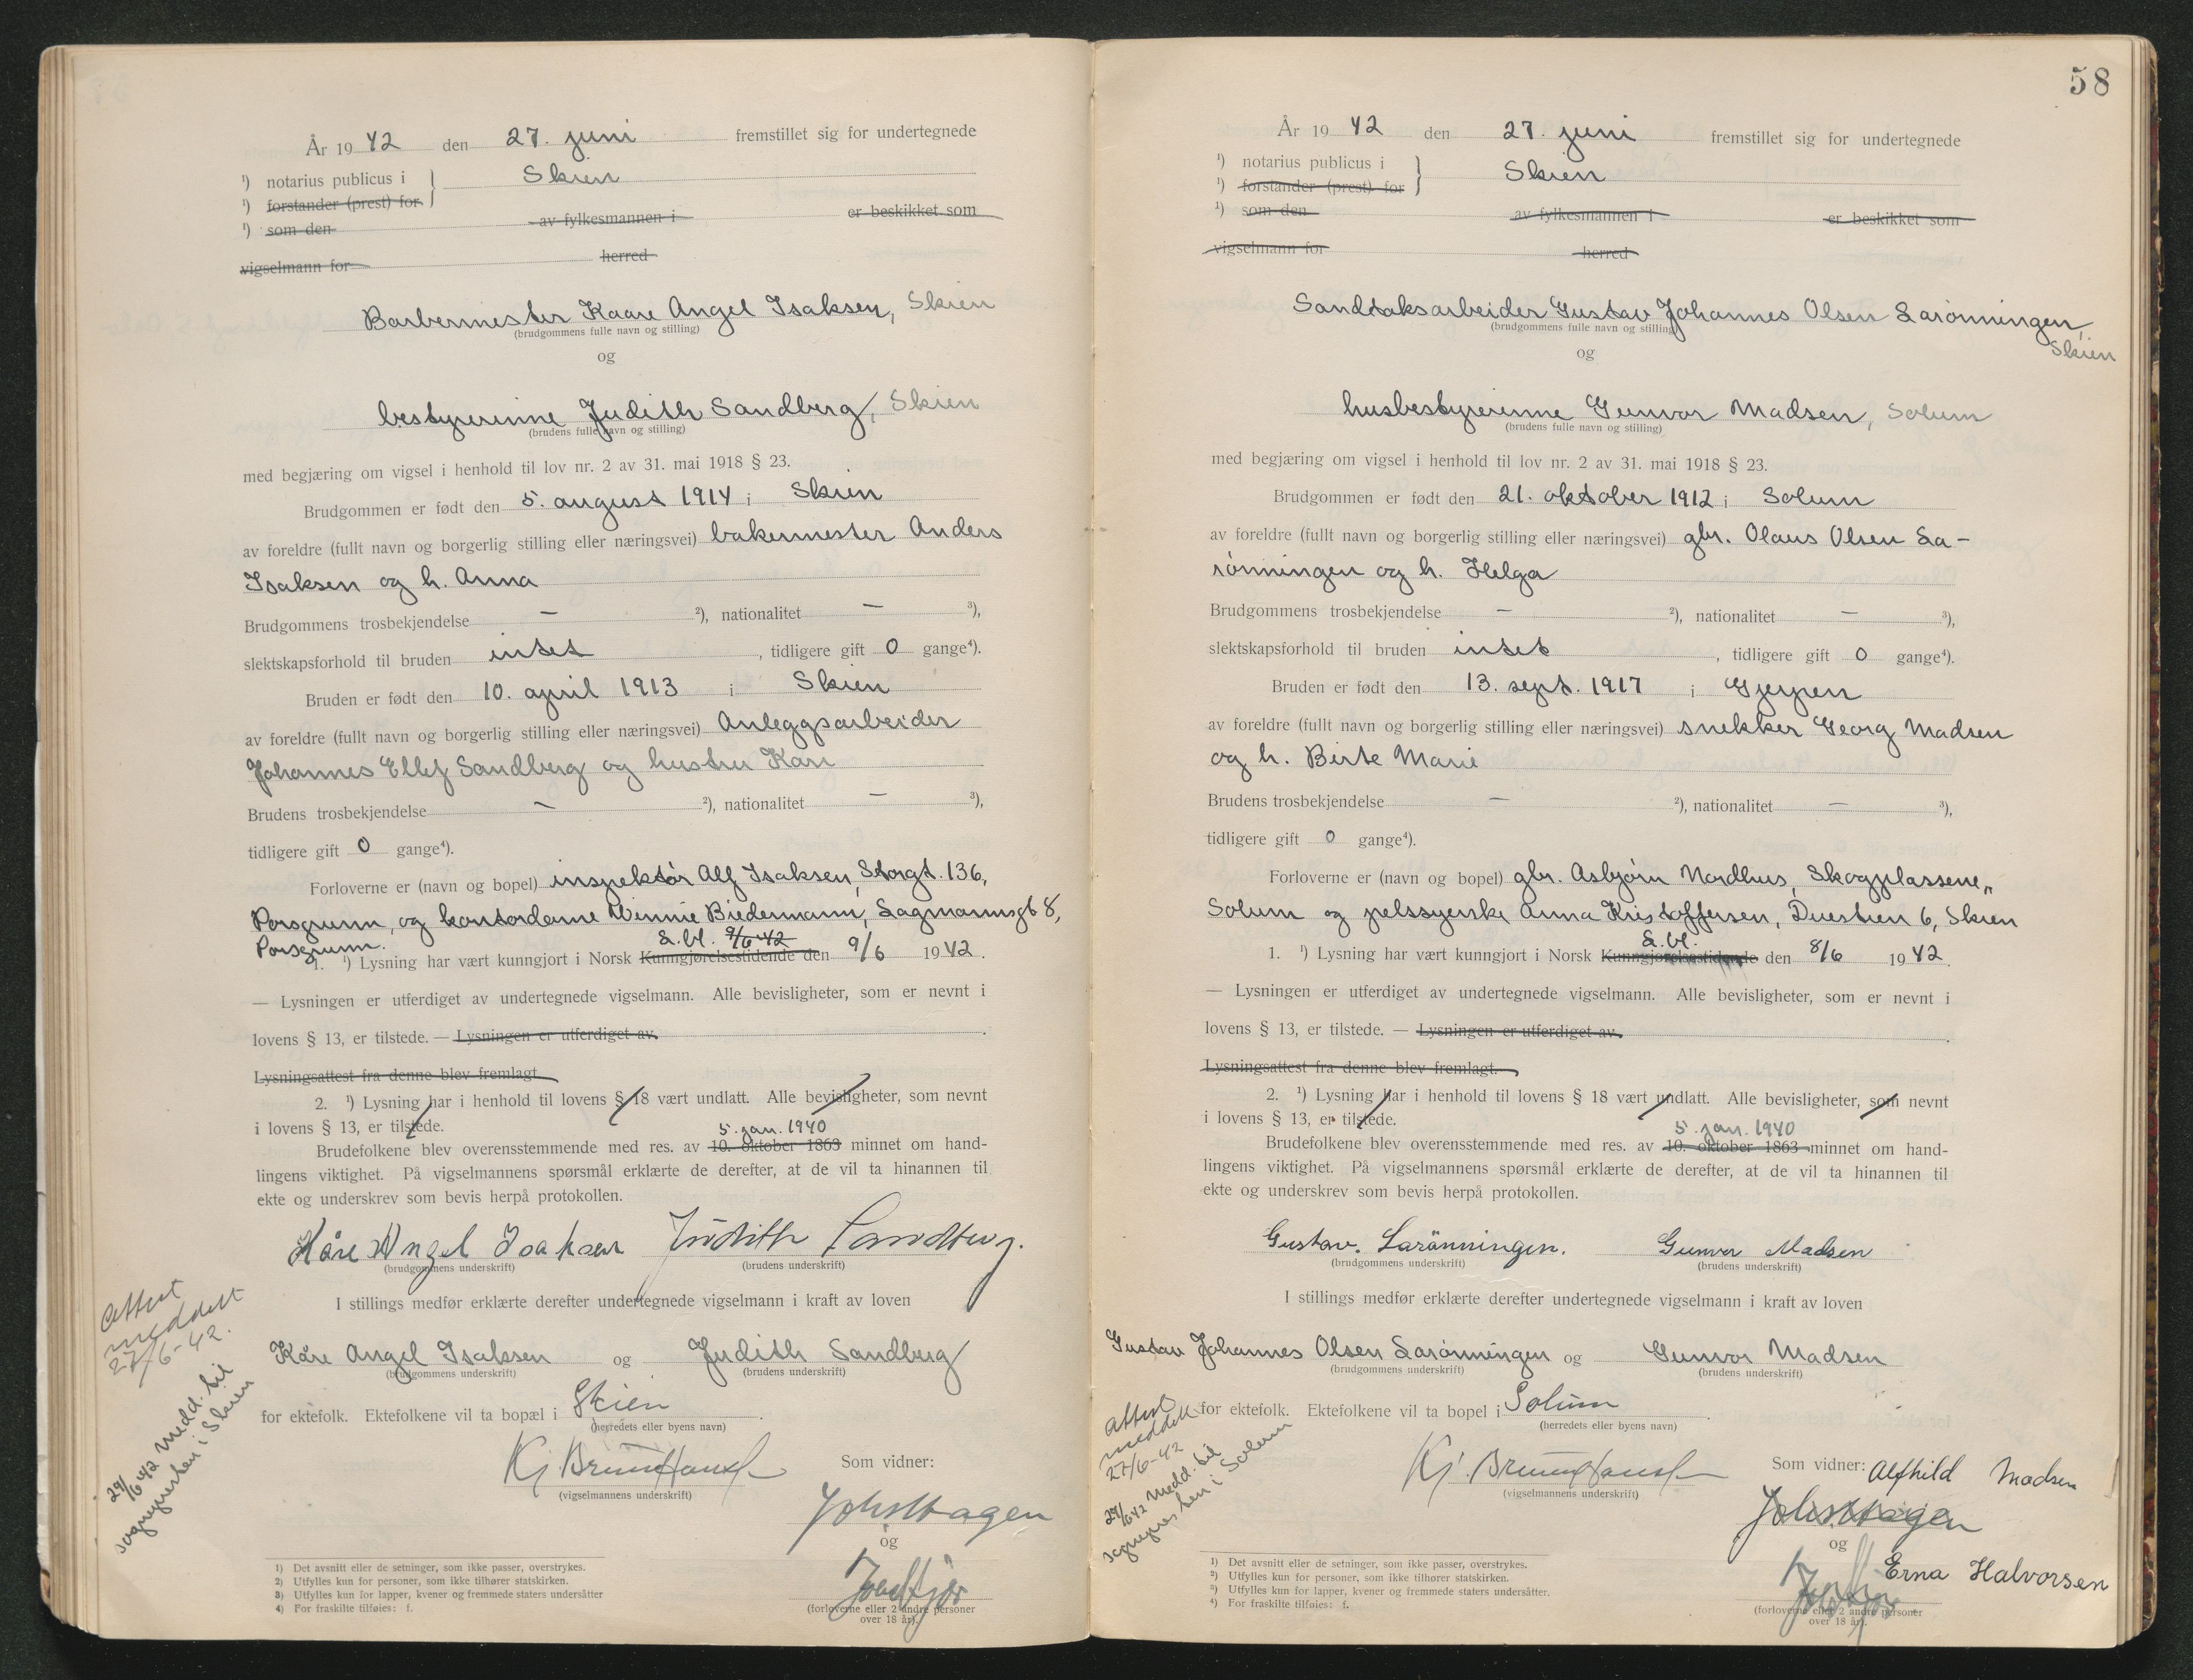 År 19 42 den 27. juni fremstillet sig for undertegnede
¹) notarius publicus i } Skien
¹) forstander (prest) for
¹) som den av fylkesmannen i er beskikket som
vigselmann for herred
Barbermester Kaare Angel Isaksen, Skien
(brudgommens fulle navn og stilling)
og
bestyrerinne Judith Sandberg, Skien
(brudens fulle navn og stilling)
med begjæring om vigsel i henhold til lov nr. 2 av 31. mai 1918 § 23.
Brudgommen er født den 5. august 1914 i Skien
av foreldre (fullt navn og borgerlig stilling eller næringsvei) bakermester Anders
Isaksen og h. Anna
Brudgommens trosbekjendelse — ²), nationalitet — ³),
slektskapsforhold til bruden intet , tidligere gift 0 gange⁴).
Bruden er født den 10. april 1913 i Skien
av foreldre (fullt navn og borgerlig stilling eller næringsvei) Anleggsarbeider
Johannes Ellef Sandberg og hustru Kari
Brudens trosbekjendelse — ²), nationalitet — ³),
tidligere gift 0 gange⁴).
Forloverne er (navn og bopel) inspektør Alf Isaksen, Storgt. 136,
Porsgrunn, og kontordame Winnie Biedermann, Sagmannsgt 8,
Porsgrunn.
S. bl. 9/6 42
1. ¹) Lysning har vært kunngjort i Norsk Kunngjørelsestidende den 9/6 1942.
— Lysningen er utferdiget av undertegnede vigselmann. Alle bevisligheter, som er nevnt i
lovens § 13, er tilstede. — Lysningen er utferdiget av .
Lysningsattest fra denne blev fremlagt
2. ¹) Lysning har i henhold til lovens § 18 vært undlatt. Alle bevisligheter, som nevnt
i lovens § 13, er tilstede.
5. jan. 1940
Brudefolkene blev overensstemmende med res. av 10. oktober 1863 minnet om hand-
lingens viktighet. På vigselmannens spørsmål erklærte de derefter, at de vil ta hinannen til
ekte og underskrev som bevis herpå protokollen.
Kåre Angel Isaksen Judith Sandberg.
(brudgommens underskrift) (brudens underskrift)
I stillings medfør erklærte derefter undertegnede vigselmann i kraft av loven
Attest
meddelt
27/6-42.
Kåre Angel Isaksen og Judith Sandberg
(brudgommens underskrift) (brudens underskrift)
for ektefolk. Ektefolkene vil ta bopæl i Skien .
(herredets eller byens navn)
29/6 42 medd. til
sognepresten i Skien
Som vidner:
(vigselmannens underskrift)
Johs Hagen
og
(forloverne eller 2 andre personer
over 18 år).
1) Det avsnitt eller de setninger, som ikke passer, overstrykes.
2) Utfylles kun for personer, som ikke tilhører statskirken.
3) Utfylles kun for lapper, kvener og fremmede staters undersåtter
4) For fraskilte tilføies: f.
58
År 19 42 den 27. juni fremstillet sig for undertegnede
¹) notarius publicus i } Skien
¹) forstander (prest) for
¹) som den av fylkesmannen i er beskikket som
vigselmann for herred
Sandtaksarbeider Gustav Johannes Olsen Larønningen,
Skien
(brudgommens fulle navn og stilling)
og
husbestyrerinne Gunvor Madsen, Solum
(brudens fulle navn og stilling)
med begjæring om vigsel i henhold til lov nr. 2 av 31. mai 1918 § 23.
Brudgommen er født den 21. oktober 1912 i Solum
av foreldre (fullt navn og borgerlig stilling eller næringsvei) gbr. Olaus Olsen La-
rønningen og h. Helga
Brudgommens trosbekjendelse — ²), nationalitet — ³),
slektskapsforhold til bruden intet , tidligere gift 0 gange⁴).
Bruden er født den 13. sept. 1917 i Gjerpen
av foreldre (fullt navn og borgerlig stilling eller næringsvei) snekker Georg Madsen
og h. Birte Marie
Brudens trosbekjendelse — ²), nationalitet — ³),
tidligere gift 0 gange⁴).
Forloverne er (navn og bopel) gbr. Asbjørn Nordhus, Skogplassene,
Solum og pelssyerske Anna Kristoffersen, Duestien 6, Skien
S. bl.
1. ¹) Lysning har vært kunngjort i Norsk Kunngjørelsestidende den 8/6 1942
— Lysningen er utferdiget av undertegnede vigselmann. Alle bevisligheter, som er nevnt i
lovens § 13, er tilstede. — Lysningen er utferdiget av .
Lysningsattest fra denne blev fremlagt.
2. ¹) Lysning har i henhold til lovens § 18 vært undlatt. Alle bevisligheter, som nevnt
i lovens § 13, er tilstede.
5. jan. 1940
Brudefolkene blev overensstemmende med res. av 10. oktober 1863 minnet om hand-
lingens viktighet. På vigselmannens spørsmål erklærte de derefter, at de vil ta hinannen til
ekte og underskrev som bevis herpå protokollen.
Gustav. Larönningen. Gunvor Madsen
(brudgommens underskrift) (brudens underskrift)
I stillings medfør erklærte derefter undertegnede vigselmann i kraft av loven
Gustav Johannes Olsen Larønningen og Gunvor Madsen
(brudgommens underskrift) (brudens underskrift)
Attest
meddelt
27/6-42
for ektefolk. Ektefolkene vil ta bopel i Solum .
(herredets eller byens navn)
29/6 42 medd. til
sognepresten i Solum
Som vidner: Alfhild Madsen
(vigselmannens underskrift)
Johs Hagen
og
Erna Halvorsen
(forloverne eller 2 andre personer
over 18 år).
1) Det avsnitt eller de setninger, som ikke passer, overstrykes.
2) Utfylles kun for personer, som ikke tilhører statskirken.
3) Utfylles kun for lapper, kvener og fremmede staters undersåtter.
4) For fraskilte tilføies: f.